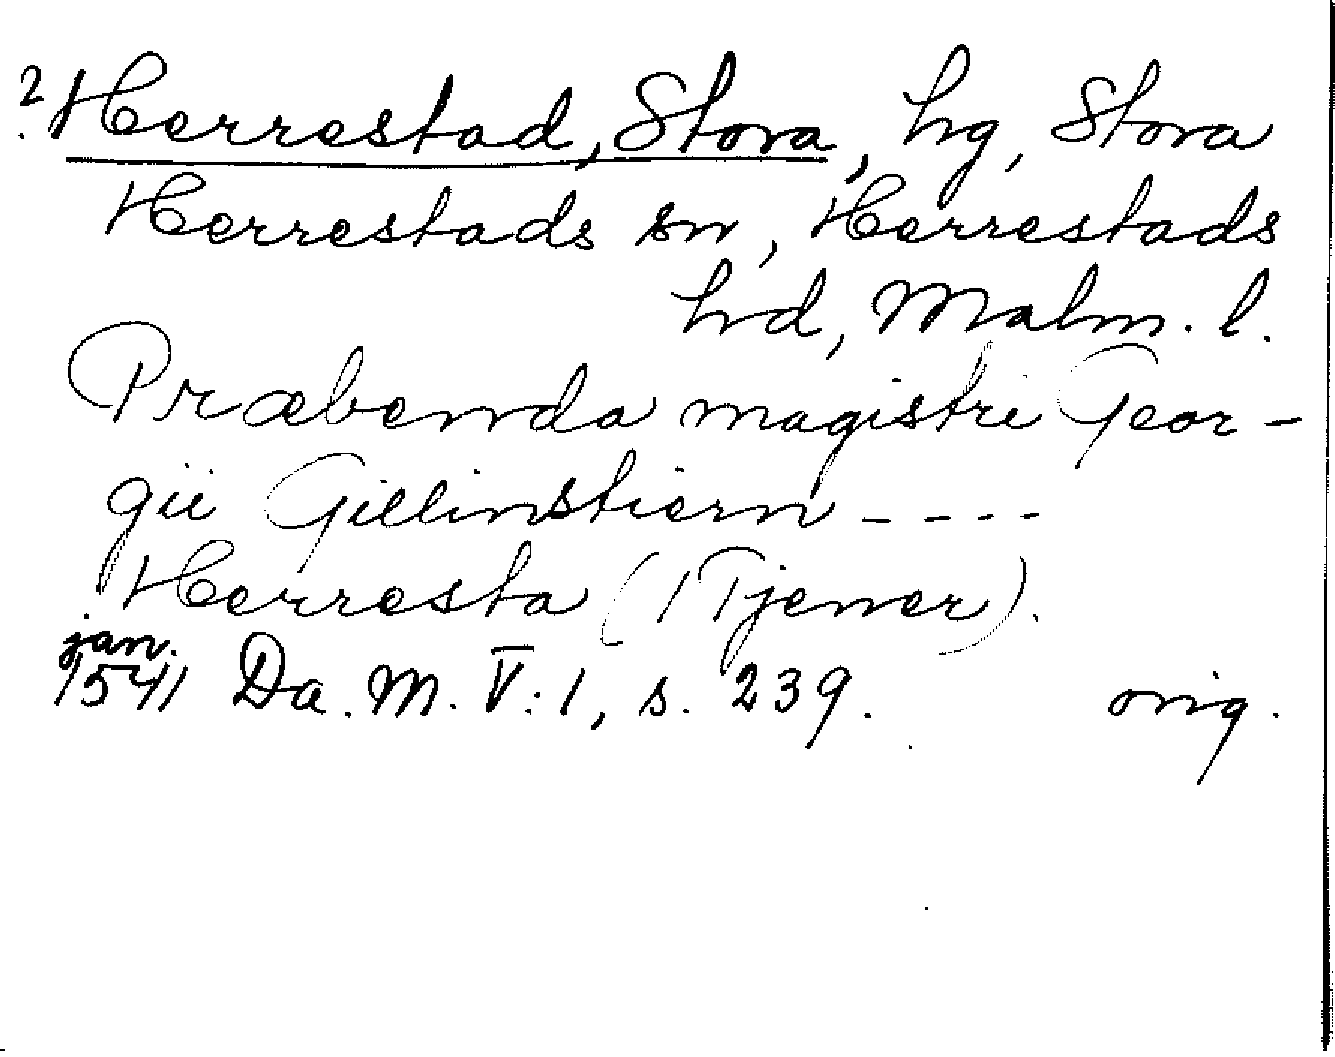 ? Herrestad, Stora, hg, Stora
Herrestads sn, Herrestads
hd, Malm. l.
Præbenda magistri Geor-
gii Gillinstiern - - - -
Herresta (1 Tjener).
jan.
1541 Da. M. V: 1, s. 239. orig.